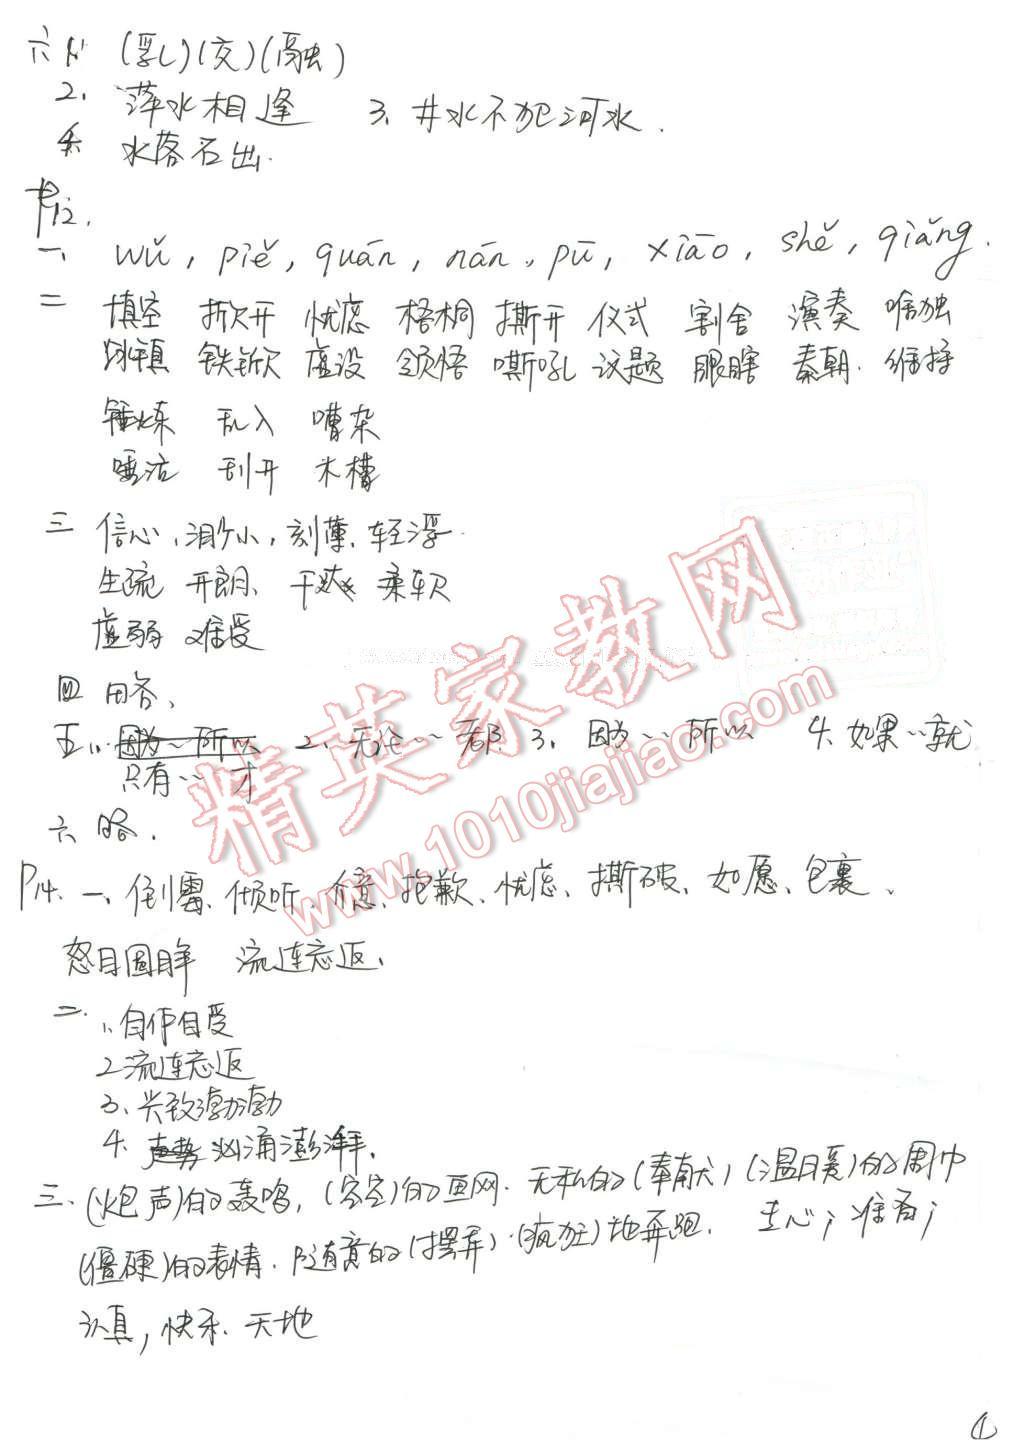 六 1、(乳)(交)(融)
2、萍水相逢 3、井水不犯河水.
水落石出.
P12.
一、wǔ, piě, quān, nān, pū, xiāo, shě, qiǎng.
二 填空 掀开 忧虑 梧桐 撕开 仪式 割舍 演奏 唯独
铁锨 虚设 领悟 嘶吼 议题 眼瞎 秦朝. 维持
锤炼 乱入 嘈杂
唾沫 刮开 木槽
三 信心, 渺小, 刻薄、轻浮.
生疏 开朗、干 柔软
虚弱 难受
四 略、
五 1、因为…所以 2、无论…都 3、因为…所以 4、如果…就
只有… 才
六 略.
P14. 一、倒霉、倾听、介意、抱歉、忧虑、撕破、如愿、包裹、
怒目圆睁 流连忘返.
二. 1、自作自受
2 流连忘返
3、兴致勃勃
4、声势 汹涌澎湃.
三、(炮声)的轰鸣, (密密)的画网. 无私的(奉献) (温暖)的围巾
(僵硬)的表情. 随意的(摆弄) (疯狂)地奔跑. 专心; 准备;
认真, 快乐. 天地
①
精英家教网
www.1010jiajiao.com